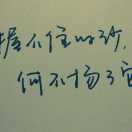 握不住的沙,
何不扬了它